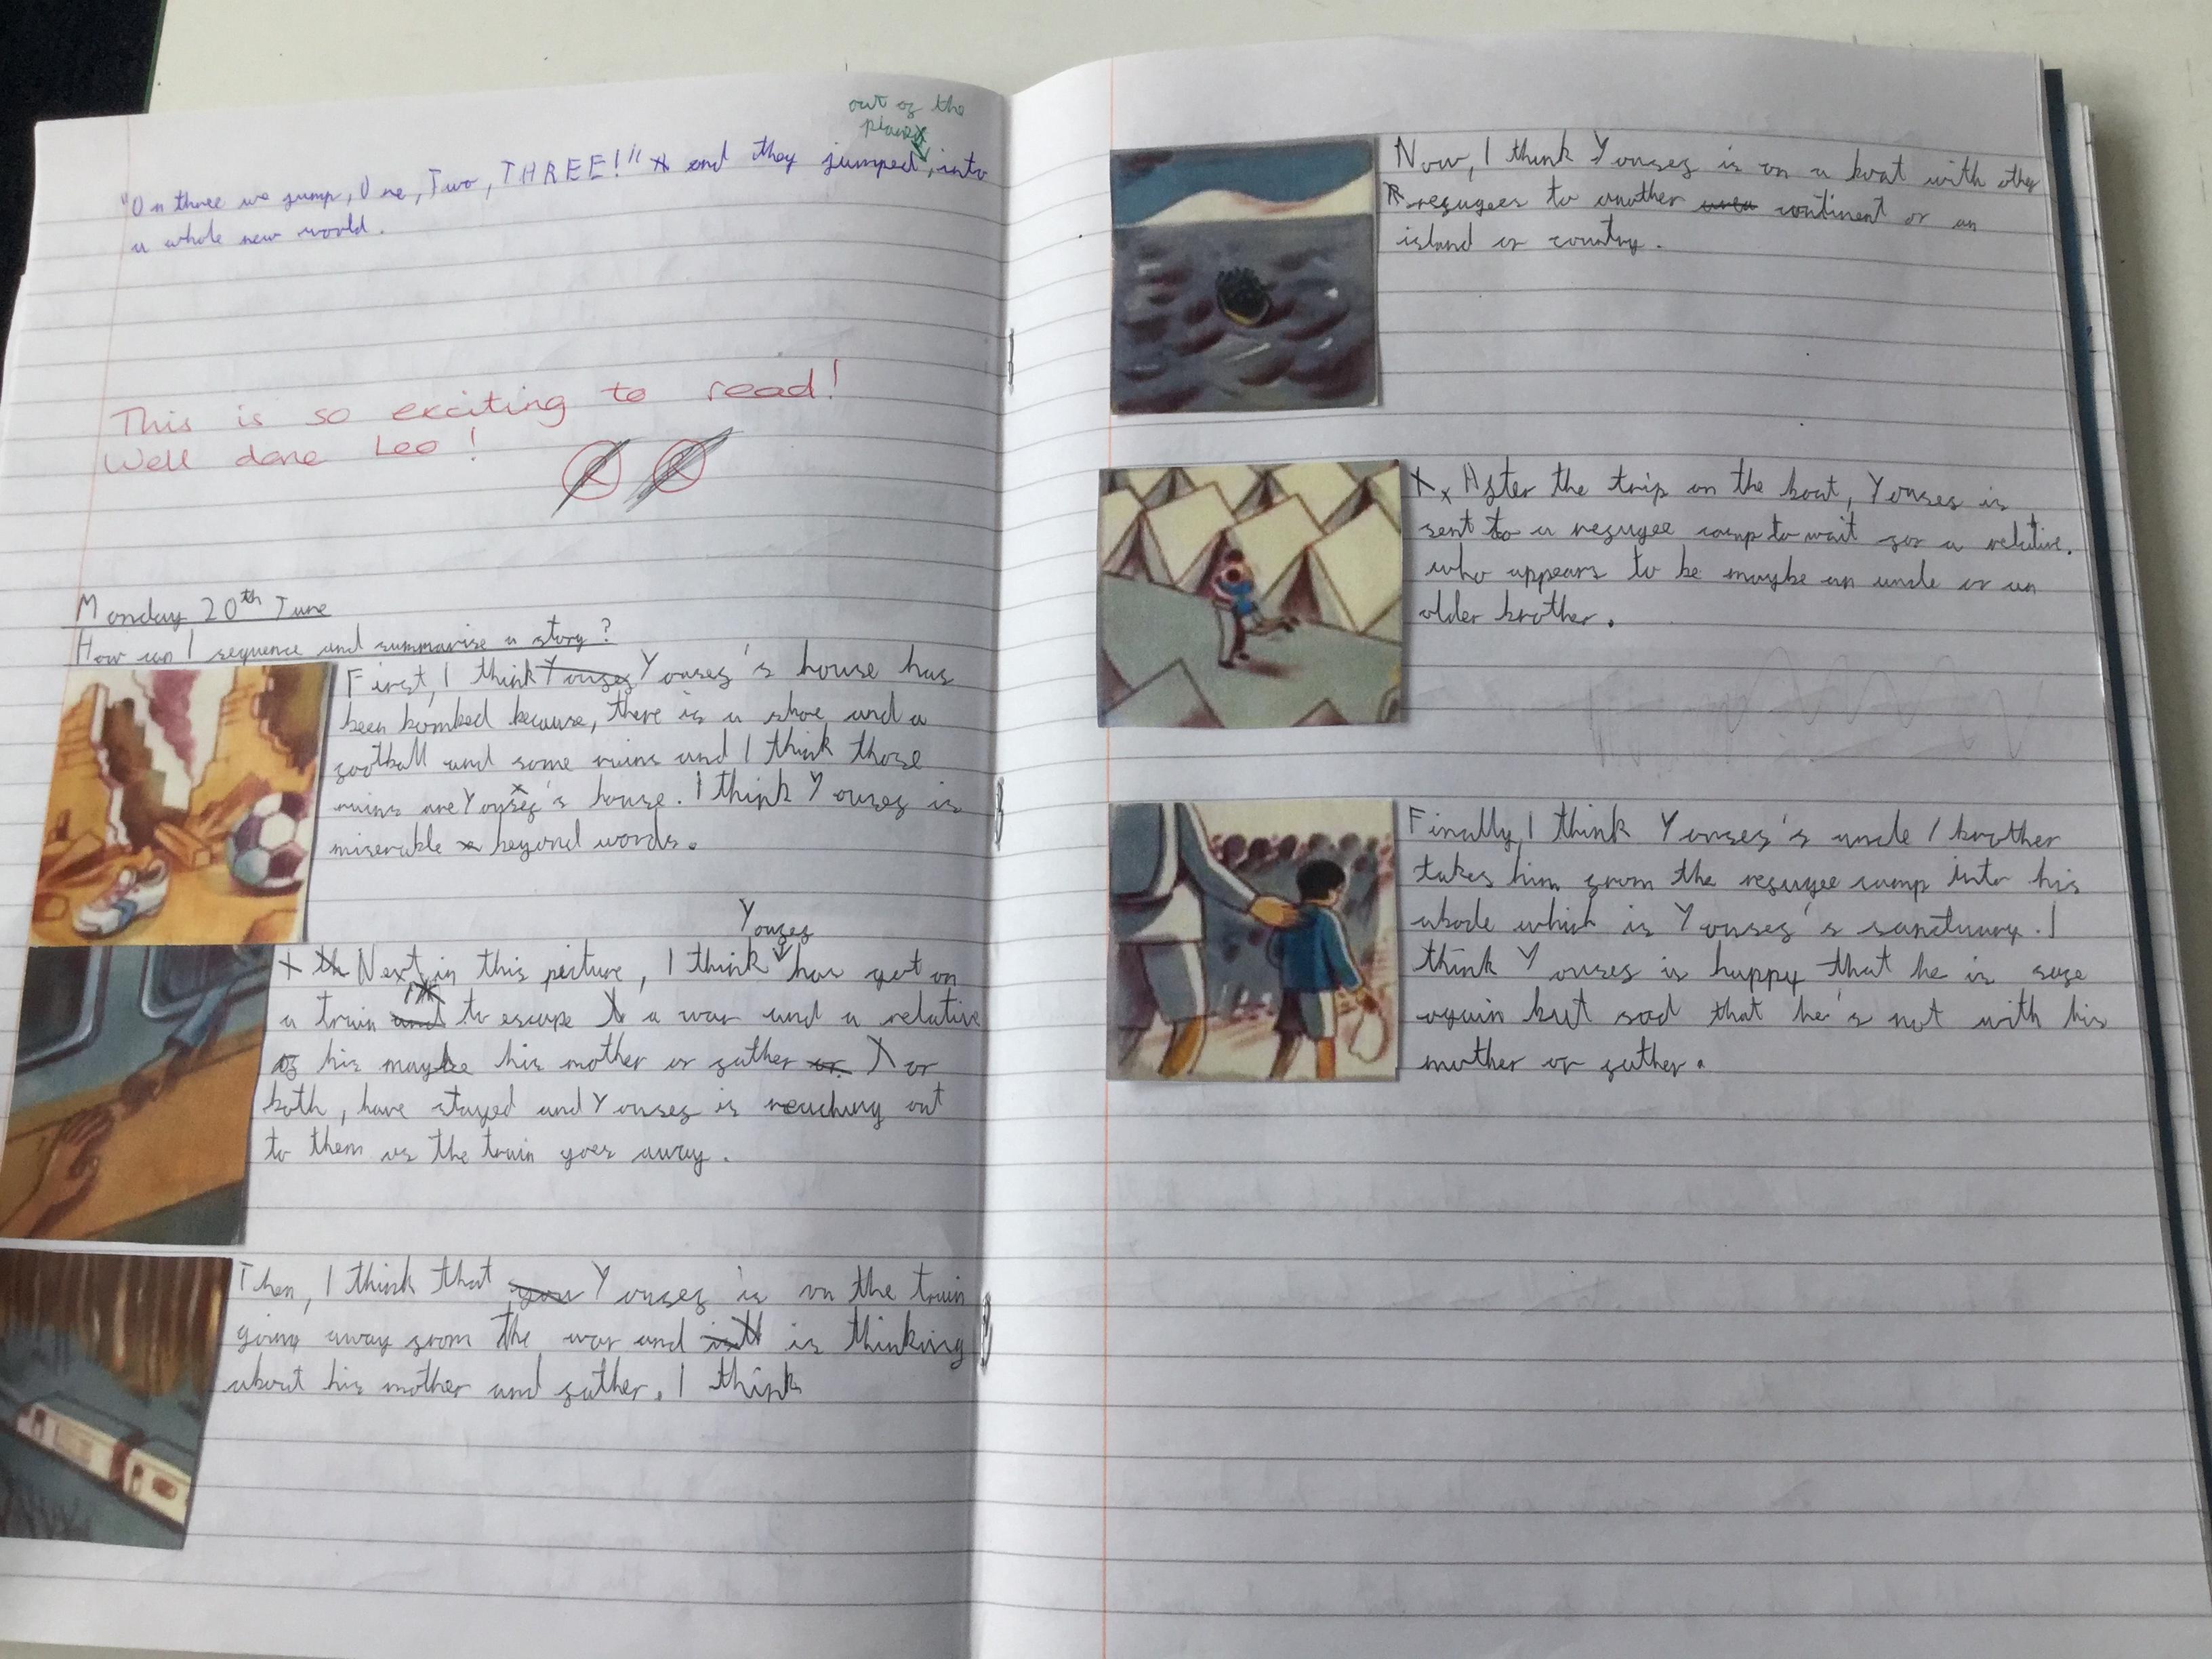 out of the
plane
"On three we jump, One, Two, THREE!" and they jumped, into
a whole new world.
This is so exciting to read!
Well done Leo!
Monday 20th June
How can I sequence and summarise a story?
First, I think Yousef Yousef's house has
been bombed because, there is a shoe and a
football and some ruins and I think those
ruins are Yousef's house. I think Yousef is
miserable beyond words.
Yousef
th Next, in this picture, I think has got on
a train and to escape a war and a relative
of his maybe his mother or father or or
both, have stayed and Yousef is reaching out
to them as the train goes away.
Then, I think that you Yousef is on the train
going away from the war and is thinking
about his mother and father. I think
Now, I think Yousef is on a boat with other
refugees to another area continent or an
island or country.
After the trip on the boat, Yousef is
sent to a refugee camp to wait for a relative.
who appears to be maybe an uncle or an
older brother.
Finally, I think Yousef's uncle / brother
takes him from the refugee camp into his
abode which is Yousef's sanctuary. I
think Yousef is happy that he is safe
again but sad that he's not with his
mother or father.